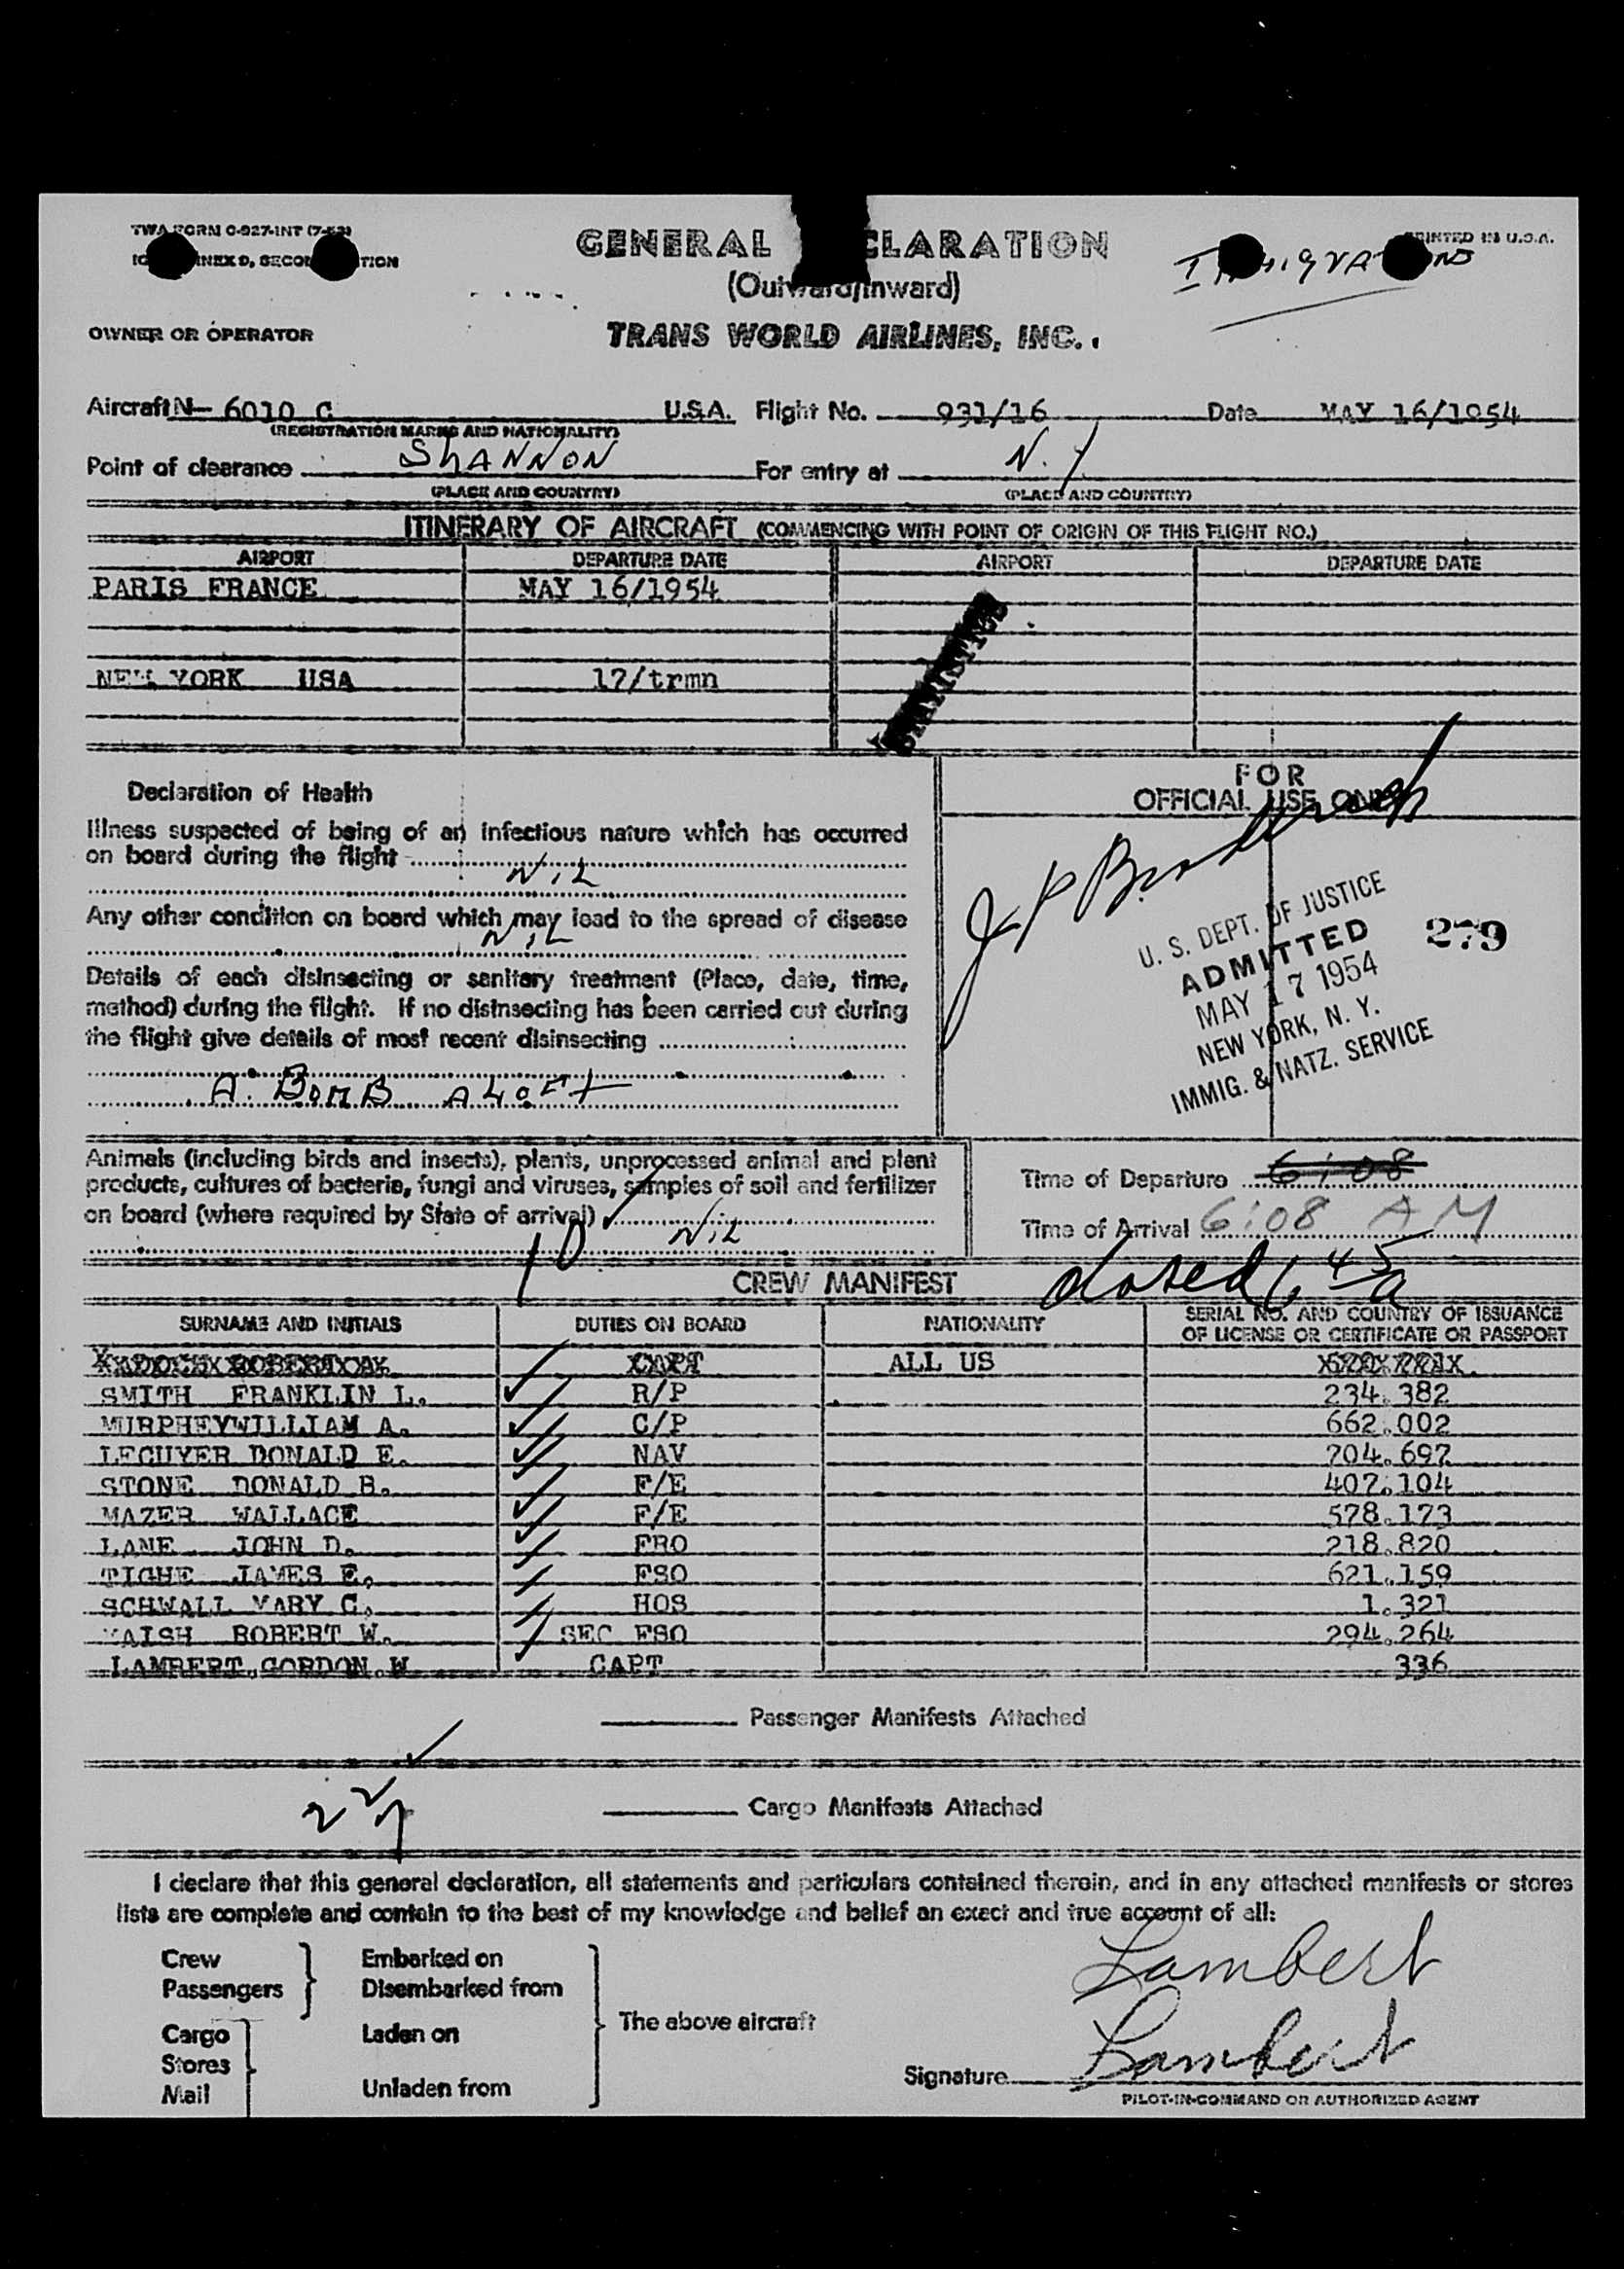 TWA FORM C-927-INT (7-53)
GENERAL CLARATION
PRINTED IN U.S.A.
(Outward/Inward)
OWNER OR OPERATOR
TRANS WORLD AIRLINES, INC.
Aircraft N- 6010 C U.S.A. Flight No. 931/16 Date MAY 16/1954
(REGISTRATION MARKS AND NATIONALITY)
Point of clearance SHANNON For entry at N.Y
(PLACE AND COUNTRY) (PLACE AND COUNTRY)
ITINERARY OF AIRCRAFT (COMMENCING WITH POINT OF ORIGIN OF THIS FLIGHT NO.)
AIRPORT DEPARTURE DATE AIRPORT DEPARTURE DATE
PARIS FRANCE MAY 16/1954
NEW YORK USA 17/trmn
Declaration of Health
Illness suspected of being of an infectious nature which has occurred
on board during the flight
NiL
Any other condition on board which may lead to the spread of disease
NiL
Details of each disinsecting or sanitary treatment (Place, date, time,
method) during the flight. If no disinsecting has been carried out during
the flight give details of most recent disinsecting
A. BOMB
FOR
OFFICIAL USE ONLY
U. S. DEPT. OF JUSTICE
ADMITTED
MAY 17 1954
NEW YORK, N. Y.
IMMIG. & NATZ. SERVICE
279
Animals (including birds and insects), plants, unprocessed animal and plant
products, cultures of bacteria, fungi and viruses, samples of soil and fertilizer
on board (where required by State of arrival)
NiL
10
Time of Departure 6:08
Time of Arrival 6:08 AM
closed 6 45 a
CREW MANIFEST
SURNAME AND INITIALS DUTIES ON BOARD NATIONALITY SERIAL NO. AND COUNTRY OF ISSUANCE
OF LICENSE OR CERTIFICATE OR PASSPORT
CAPT ALL US
SMITH FRANKLIN L. R/P 234.382
MURPHEYWILLIAM A. C/P 662.002
LECUYER DONALD E. NAV 704.697
STONE DONALD B. F/E 407.104
MAZER WALLACE F/E 578.173
LANE JOHN D. FRO 218.820
TIGHE JAMES E. FSO 621.159
SCHWALL MARY C. HOS 1.321
WALSH ROBERT W. SEC FSO 294.264
LAMBERT,GORDON.W CAPT 336
Passenger Manifests Attached
Cargo Manifests Attached
I declare that this general declaration, all statements and particulars contained therein, and in any attached manifests or stores
lists are complete and contain to the best of my knowledge and belief an exact and true account of all:
Crew
Passengers
Embarked on
Disembarked from
Cargo
Stores
Mail
Laden on
Unladen from
The above aircraft
Lambert
Signature Lambert
PILOT-IN-COMMAND OR AUTHORIZED AGENT